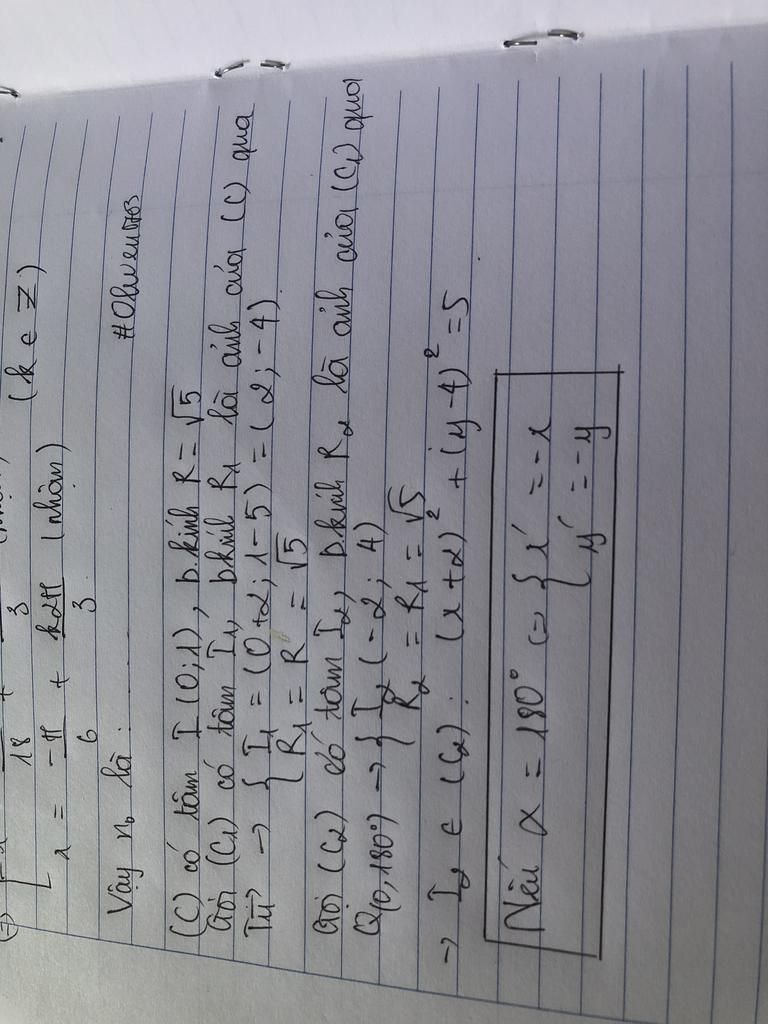 18 3
x = -π/6 + k2π/3 (nhận) (k ∈ Z)
Vậy n₀ là :
(C) có tâm I (0;1), b.kính R = √5
Gọi (C₁) có tâm I₁, b.kính R₁ là ảnh của (C) qua
Tu⃗ → { I₁ = (0+2; 1-5) = (2; -4)
R₁ = R = √5
Gọi (C₂) có tâm I₂, b.kính R₂ là ảnh của (C₁) qua
Q(0,180°) → { I₂ (-2; 4)
R₂ = R₁ = √5
→ I₂ ∈ (C₂) : (x+2)² + (y-4)² = 5
Nếu α = 180° (=) { x' = -x
y' = -y